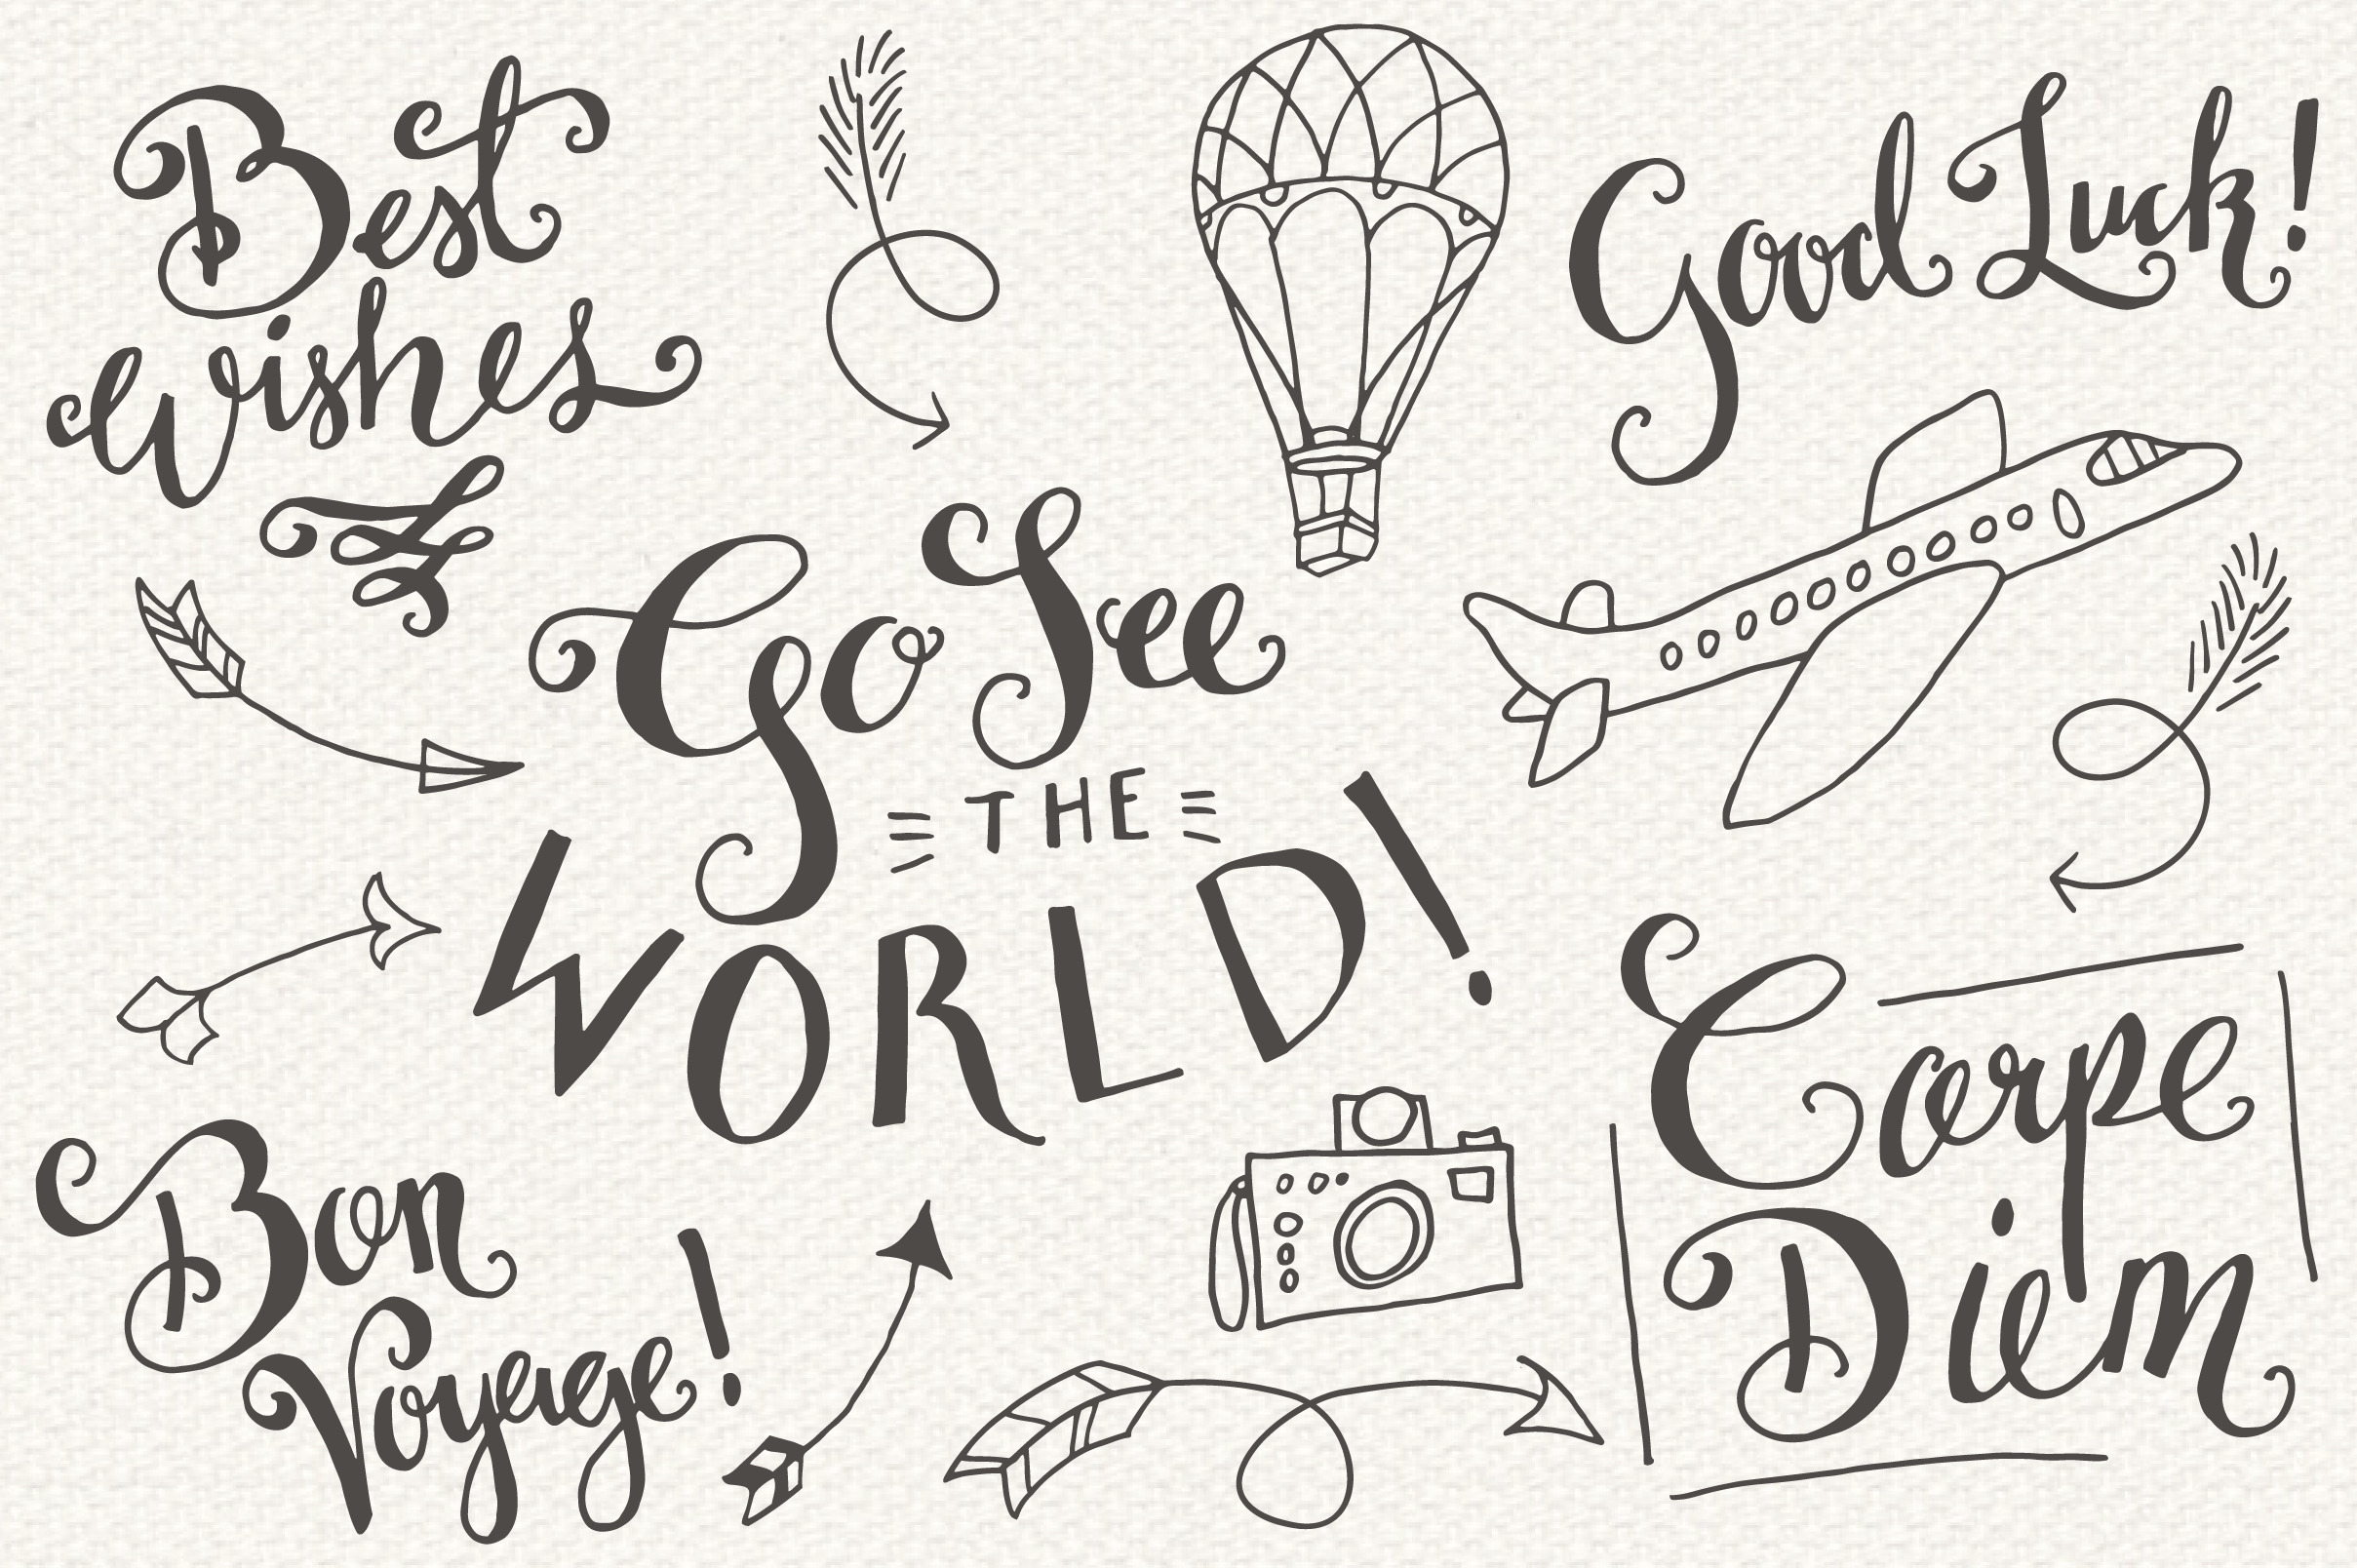 Best
Wishes
Good Luck!
Go See
THE
WORLD!
Carpe
Diem
Bon
Voyage!